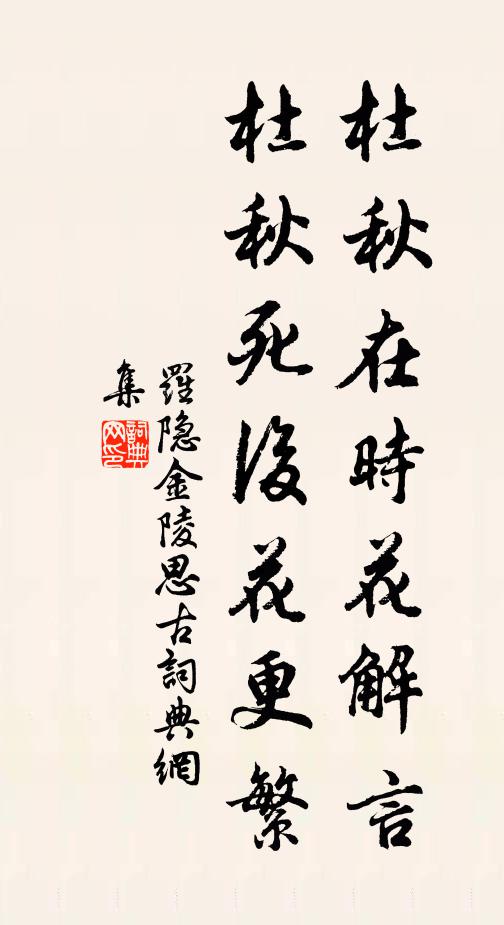 杜秋在時花解言
杜秋死後花更繁
羅隐金陵思古詞典網
集
詞典
网印